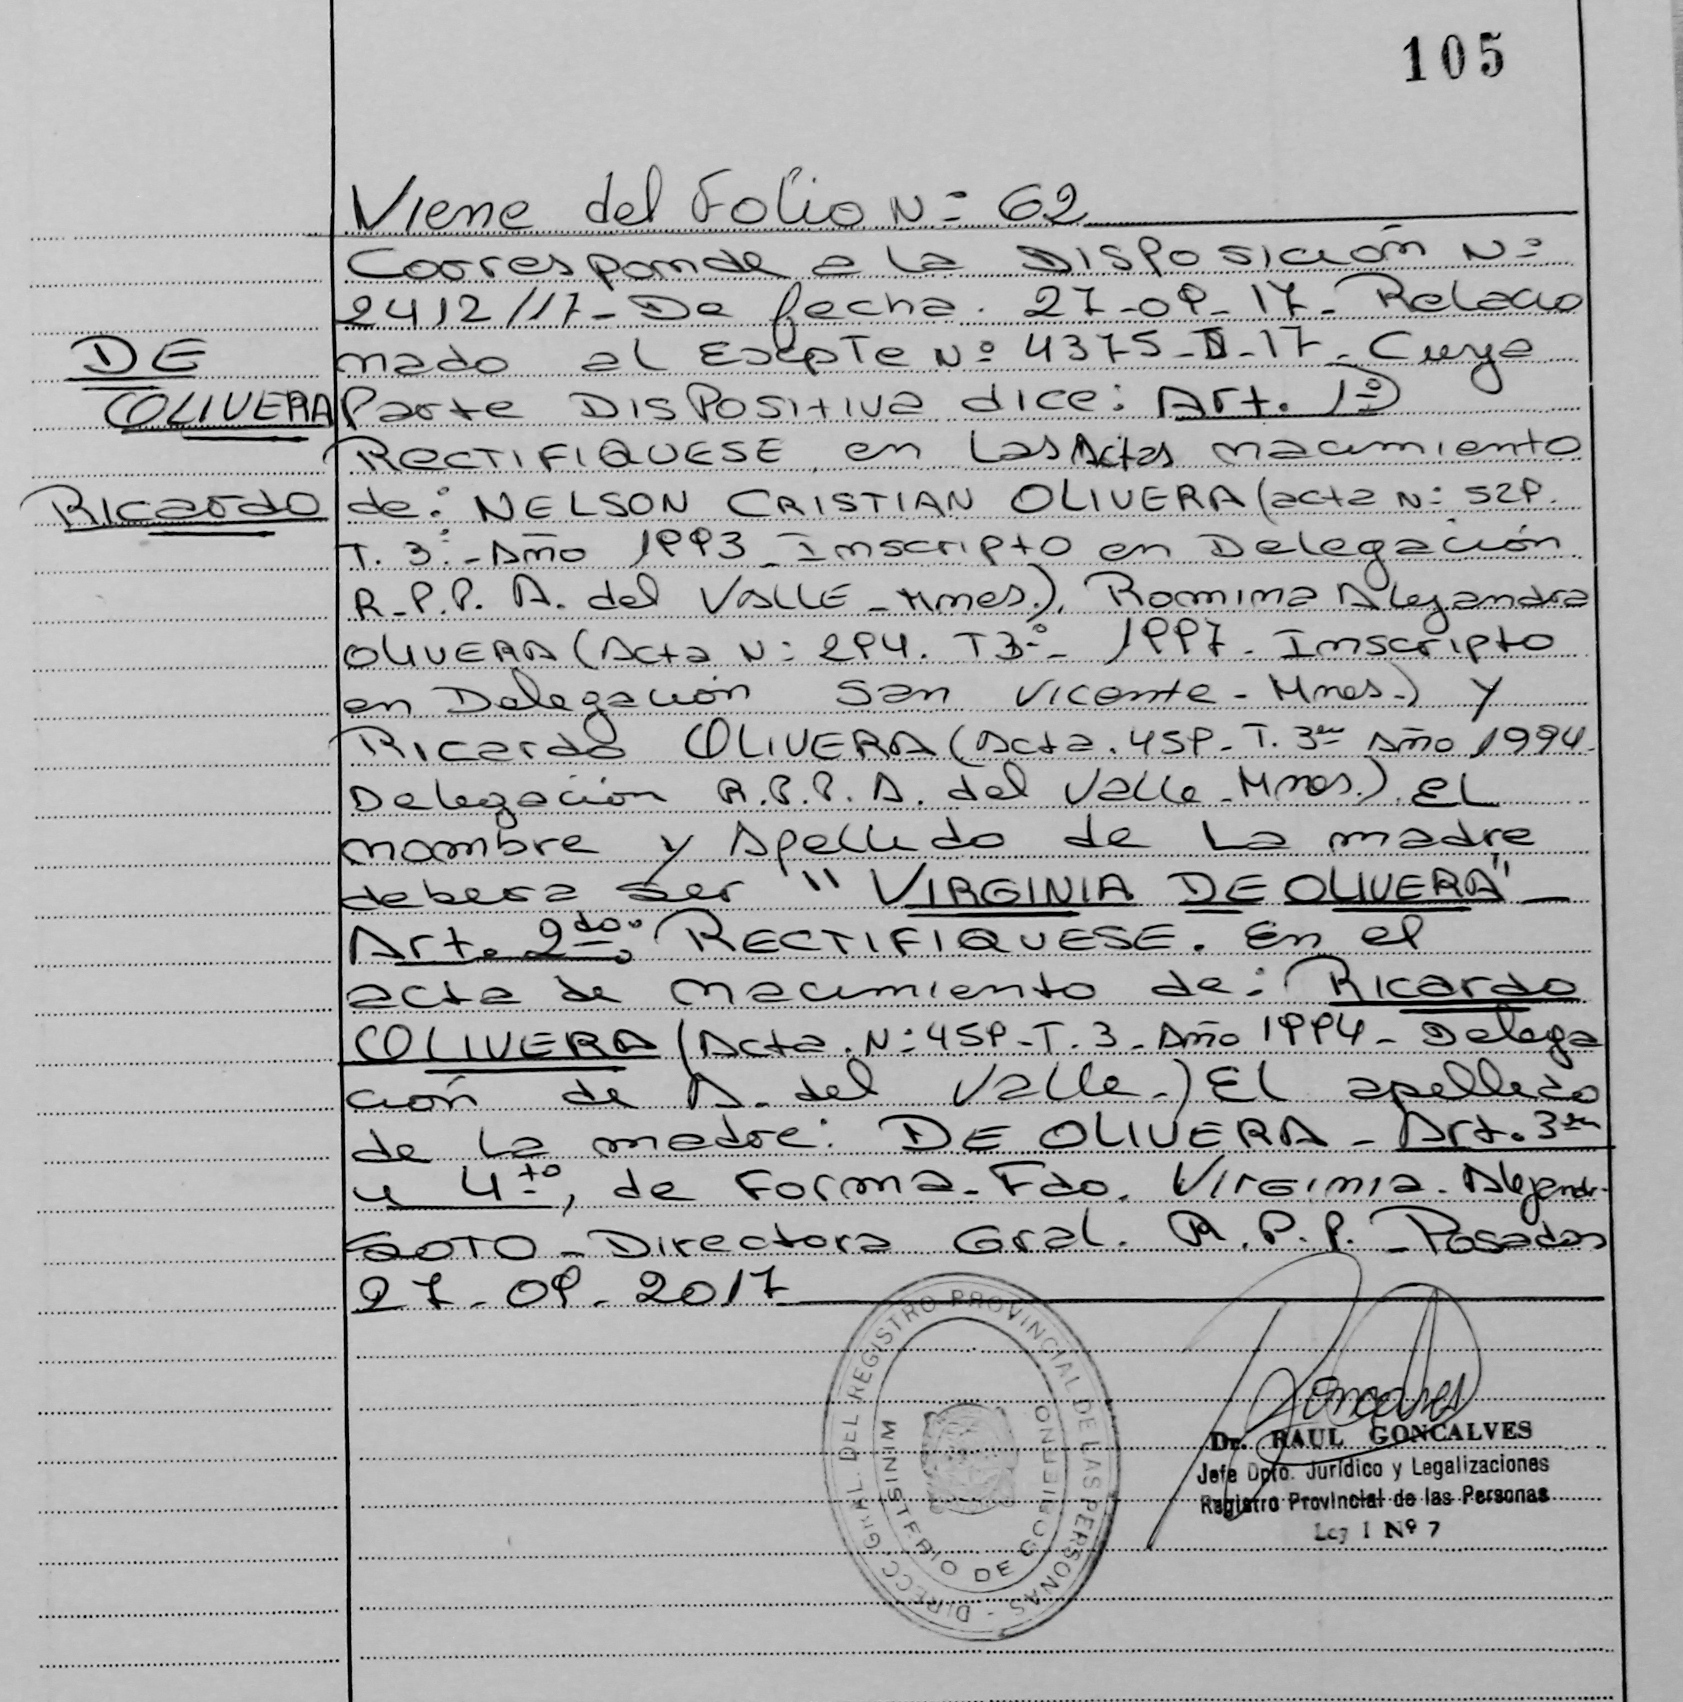 105
Viene del Folio Nº 62
Corresponde a la Disposición Nº
2412/17- De fecha. 27-09-17- Relacio
nado al Expte Nº 4375-D-17- Cuya
DE
OLIVERA
Parte Dispositiva dice: Art. 1º)
RECTIFIQUESE en Las Actas nacimiento
Ricardo
de: NELSON CRISTIAN OLIVERA (acta Nº 529.
T. 3º- Año 1993 - Inscripto en Delegación
R.P.P. A. del VALLE - Mnes.), Romina Alejandra
OLIVERA (Acta Nº 294. T3º- 1997- Inscripto
en Delegación San Vicente - Mnes.) y
Ricardo OLIVERA (Acta. 459- T. 3ro Año 1994-
Delegación R.P.P. A. del Valle - Mnes.) EL
nombre y Apellido de La madre
debera ser "VIRGINIA DE OLIVERA" -
Art. 2do. RECTIFIQUESE. En el
acta de nacimiento de: Ricardo
OLIVERA (Acta. Nº 459- T. 3 - Año 1994 - Delega
ción de A. del Valle.) El apellido
de La madre: DE OLIVERA - Art. 3ro
y 4to, de Forma - Fdo. Virginia. Alejandr.
SOTO - Directora Gral. R.P.P. - Posadas
27-09-2017
DIRECC. GRAL. DEL REGISTRO PROVINCIAL DE LAS PERSONAS -
MINISTERIO DE GOBIERNO
Goncalves
Dr. RAUL GONCALVES
Jefe Dpto. Jurídico y Legalizaciones
Registro Provincial de las Personas
Ley I Nº 7